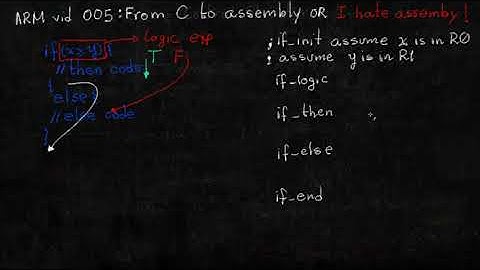 ARM vid 005: From C to assembly OR I hate assemby!
if (x≥y) {
logic exp
// then code
T F
}
else {
// else code
}
; if_init assume x is in R0
; assume y is in R1
if_logic
if_then
if_else
if_end